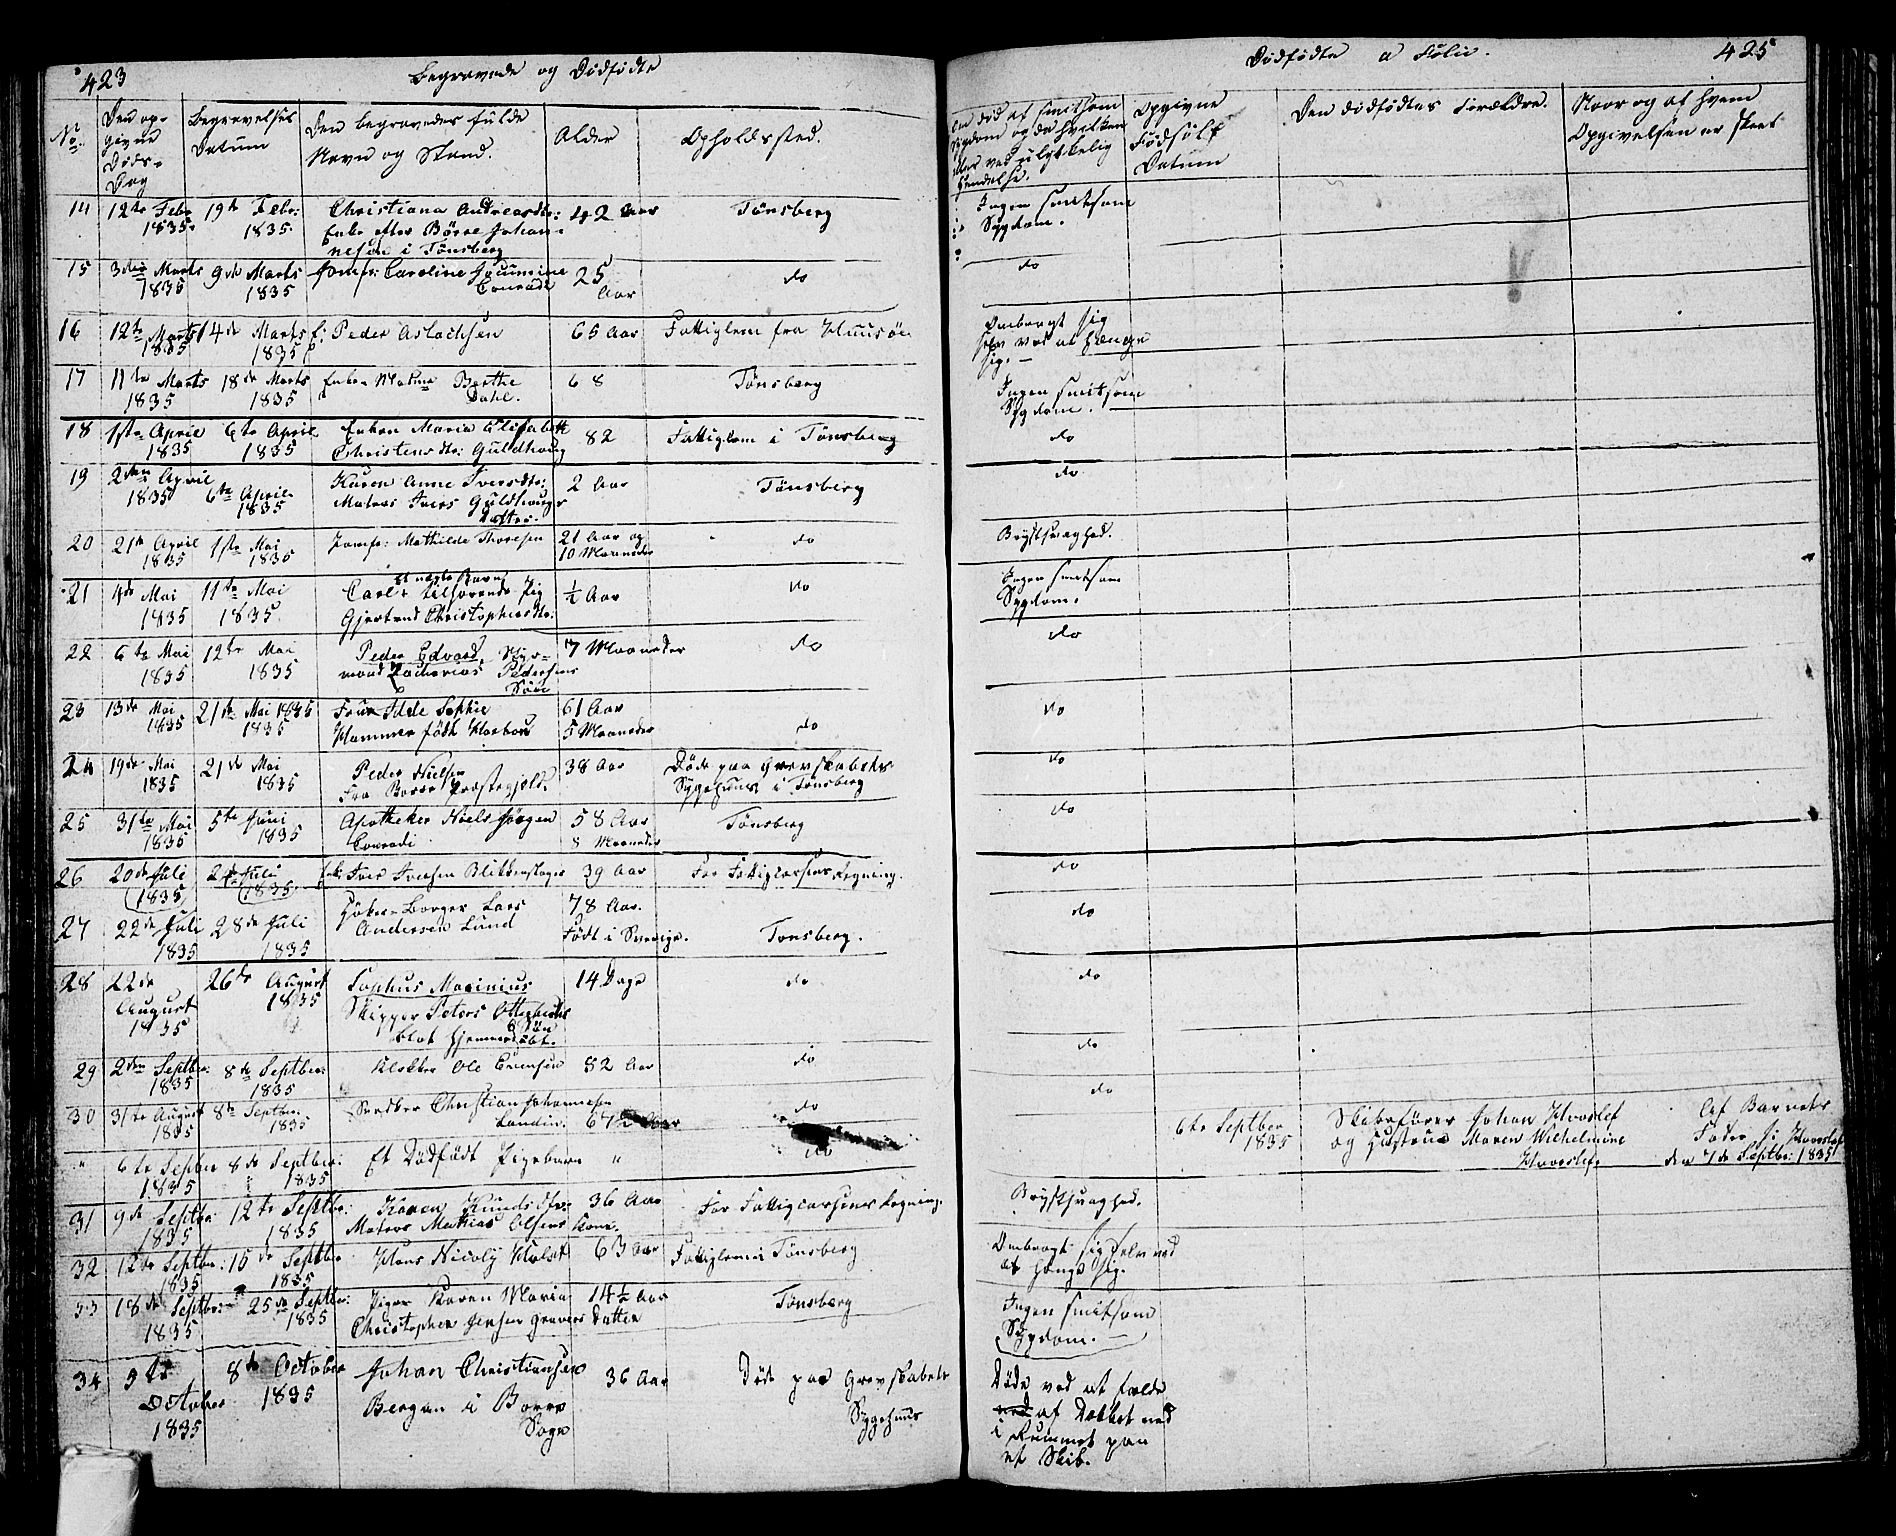 423
Begravede og Dödfödte
No.
Den op-
givne
Döds-
Dag
Begravelses
Datum
Den begravedes fulde
Navn og Stand.
Alder
Opholdssted.
14 12te Febr 1835. 19de Febr: 1835. Christiana Andreasdtr: 42 Aar Tönsberg
Enke efter Börre Johan-
nesen i Tönsberg
15 3die Marts 1835 9de Marts 1835 Jomfr: Caroline Conradi 25 Aar do
16 12te Marts 1835 14de Marts 1835 Peder Aslachsen 65 Aar Fattiglem fra Huusöe
17 11te Marts 1835 18de Marts 1835 Enken Mad. Berthe Dahl. 68 Tönsberg
18 1ste April 1835 6te April 1835 Enken Maria Elisabeth 82 Fattiglem i Tönsberg
Christensdtr: Guldhoug
19 2den April 1835 6te April 1835 Karen Anne Iversdtr: 2 Aar Tönsberg
Matros Ivers Guldhougs
Datter.
20 21de April 1835 1ste Mai 1835 Jomfr: Mathilde Thoresen 21 Aar og 10 Maaneder do
21 4de Mai 1835 11te Mai 1835 Carl et uægte Barn tilhörende Pig ½ Aar do
Gjertrud Christophersdtr:
22 6te Mai 1835 12te Mai 1835 Peder Edvard, 7 Maaneder do
Zacharias Pedersens
Sön
23 13de Mai 1835 21de Mai 1835 Frue Ide Sophie 61 Aar 5 Maaneder do
Hammer födt Harboe
24 19de Mai 1835 21de Mai 1835 Peder Nielsen 38 Aar Döde paa Grevskabets
Fra Borre Præstegjeld. Sygehuus i Tönsberg
25 31te Mai 1835 5te Juni 1835 Apotheker Niels Jörgen 58 Aar Tönsberg
Conradi 8 Maaneder
26 20de Juli 1835 24de Juli 1835 Iver Iversen Blikkenslager 39 Aar For Fattigcassens Regning.
27 22de Juli 1835 28de Juli 1835 Höker-Borger Lars 78 Aar.
Andersen Lund Födt i Sverige. Tonsberg.
28 22de August 1835 26de August 1835 Sophus Marinius 14 Dage do
Skipper Peters Sön
blot hjemmedöbt.
29 2den Septbr: 1835 8de Septbr: 1835 Klokker Ole Evensen 52 Aar do
30 31te August 1835 8de Septbr: 1835 Snedker Christian Johannesen do
Landin.
" 6te Septbr 1835 8de Septbr: 1835 Et Dödfödt Pigebarn " do
31 9de Septbr: 1835 12te Septbr: 1835 Karen Knudsdtr: 36 Aar For Fattigcassens Regning.
Matros Mathias Olsens Kone.
32 12te Septbr: 1835 15de Septbr 1835 Hans Nicolý Holst 63 Aar Fattiglem i Tönsberg
33 18de Septbr: 1835 25de Septbr: 1835 Pigen Karen Maria 14½ Aar Tönsberg
Christopher Jensen Gravers Datter
34 5te October 1835 8de October 1835 Johan Christiansen 36 Aar Döde paa Grevskabets
Bergan i Borre Sygehuus
Sogn
Dödfödte a Folio.
425
Om död af smitsom
Sygdom og da hvilken
eller ved ulykkelig
Hendelse.
Opgivne
Födsels
Datum
Den dödfödtes Forældre.
Naar og af hvem
Opgivelsen er skeet
Ingen smitsom
Sygdom.
do
Ombragt sig
selv ved at hænge
sig.
Ingen smitsom
Sygdom.
do
do
Brystsvaghed.
Ingen smitsom
Sygdom.
do
do
do
do
do
do
do
do
do
6te Septber 1835 Skibsförer Johan Hvoslef Af Barnets
og Hustrue Maren Wilhelmine Fader Hvoslef
Hvoslef. den 7de Septbr: 1835
Brystsvaghed.
Ombragt sig selv ved
at hænge sig.
Ingen smitsom
Sygdom.
Döde ved at falde
ned af Dækket ned
i Rummet paa
et Skib.